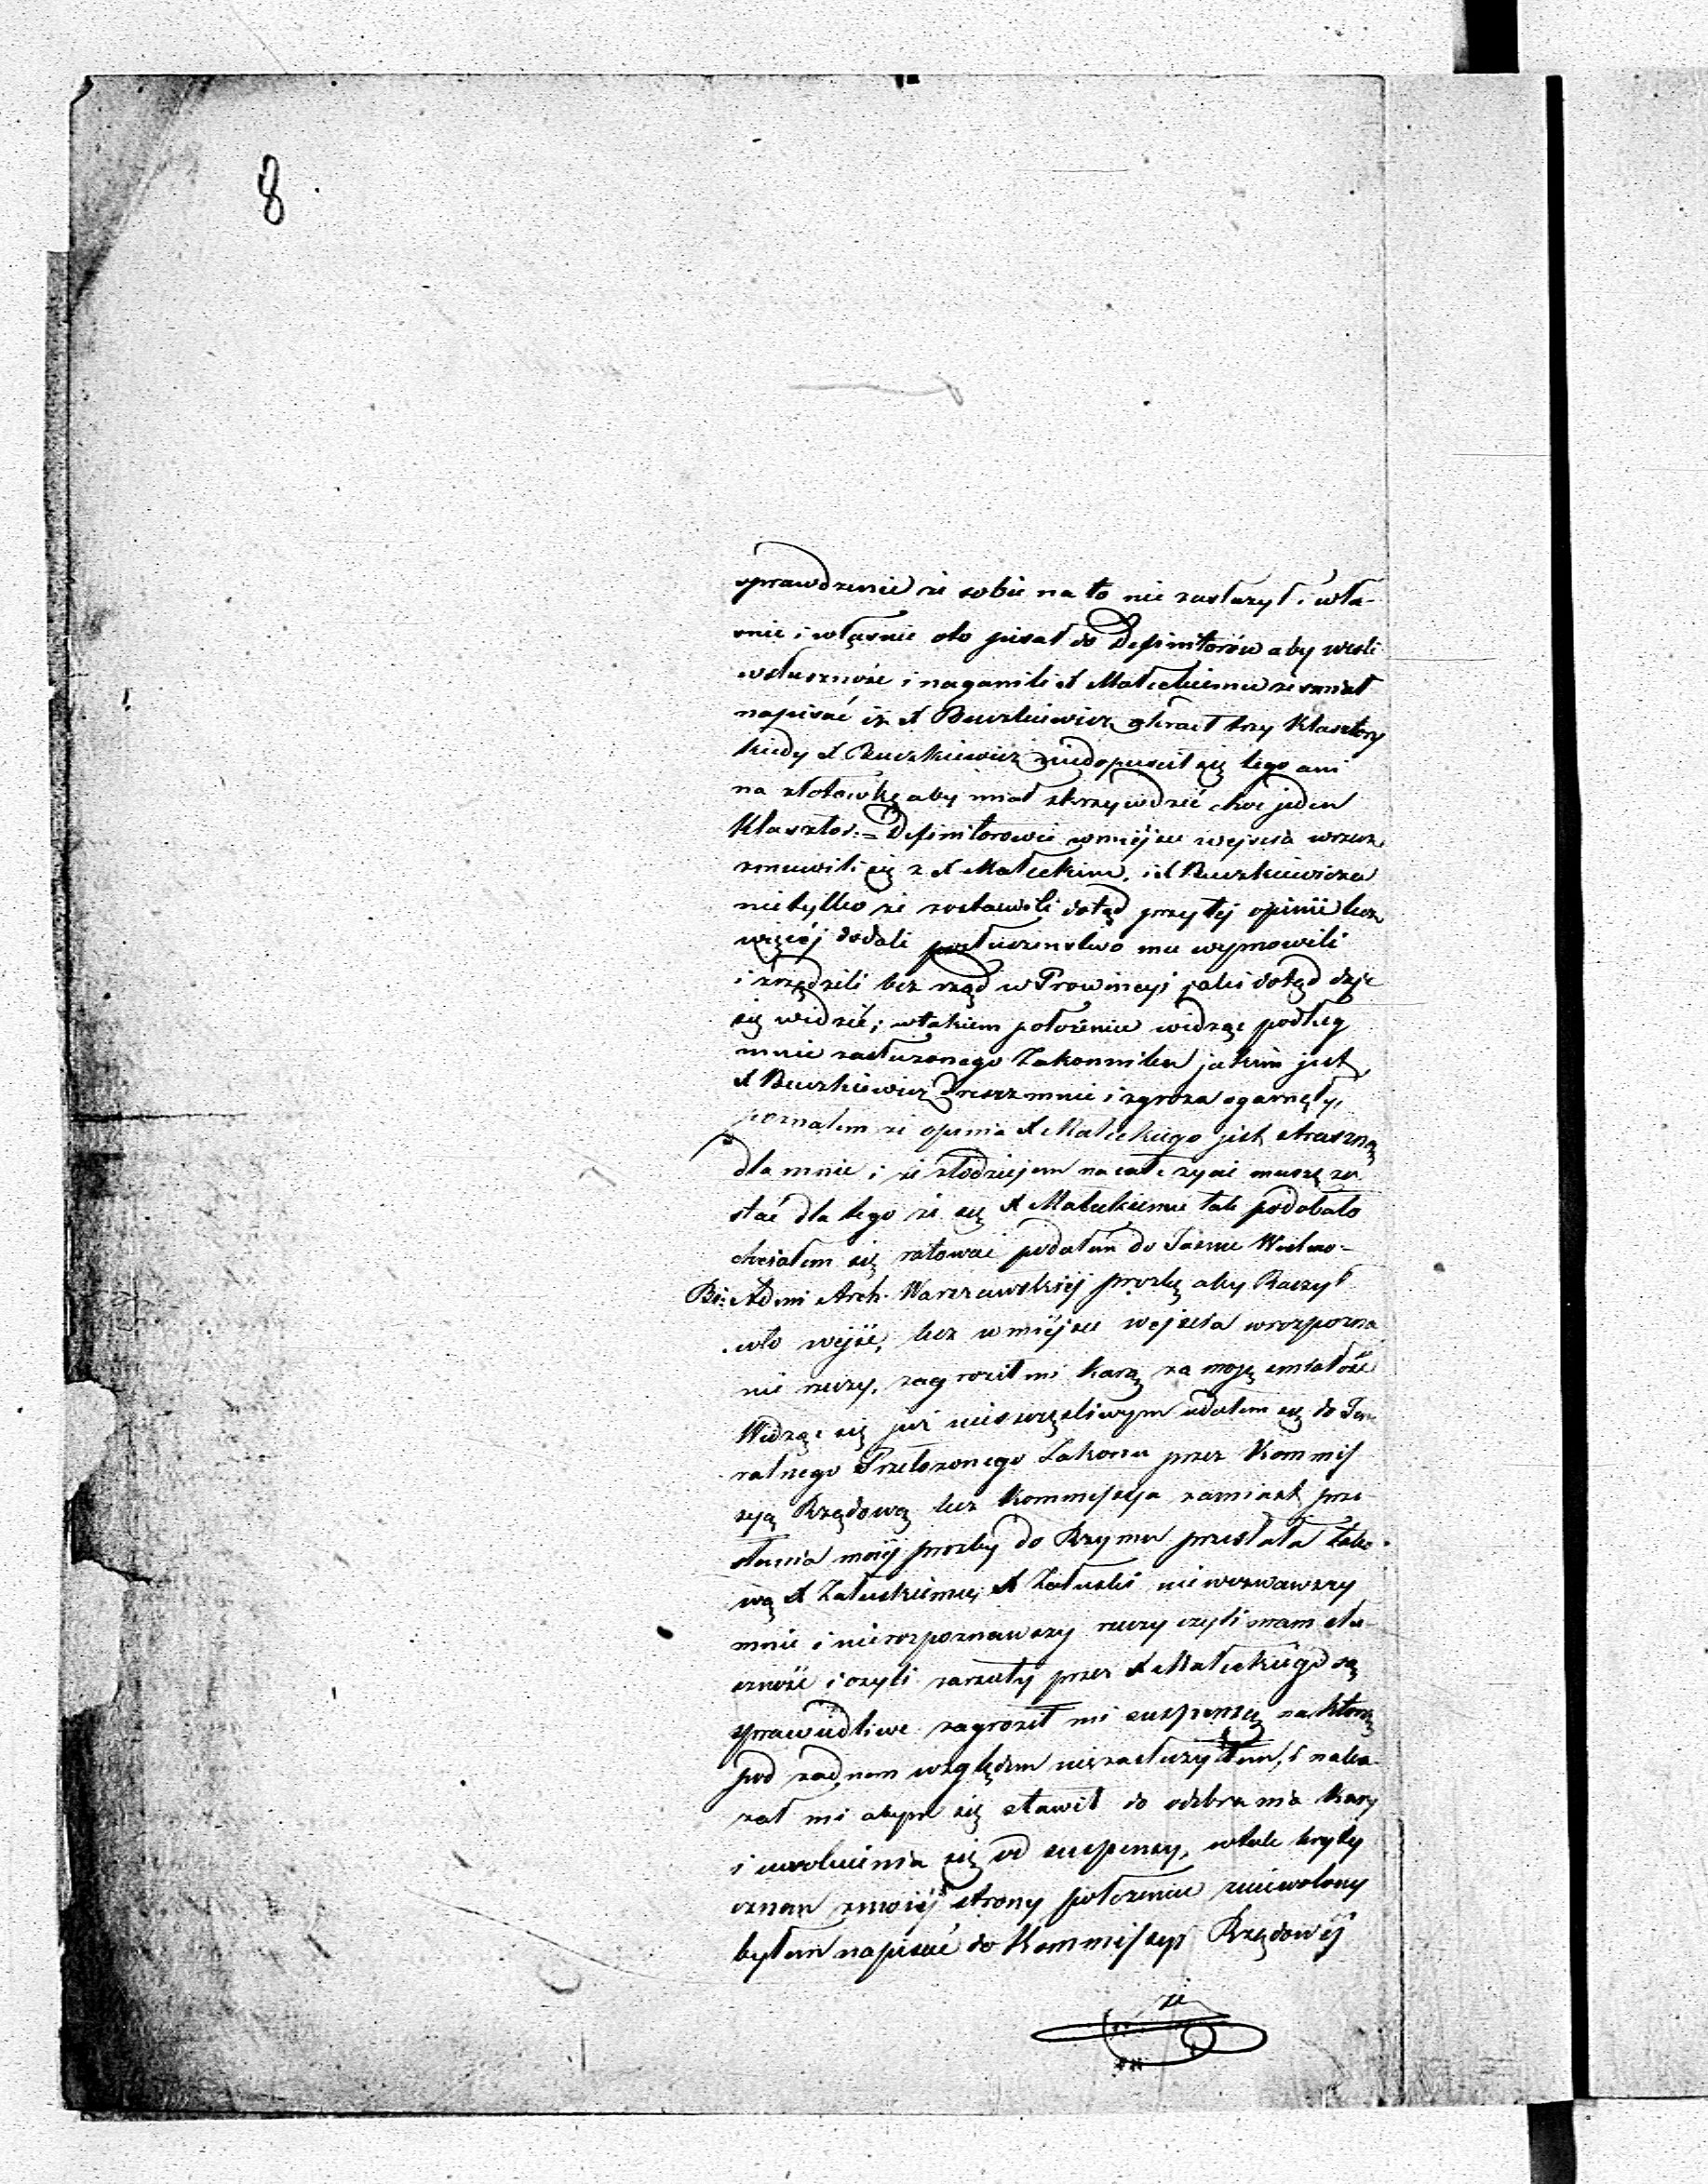 8
sprawdzenie że sobie na to nie zasłużył: wła-
snie i własnie oto pisał do Definitorów aby weśli
wsłuszność i naganili X Małeckiemu że śmiał
napisać iż X Buczkiewicz okradł trzy Klasztory
kiedy X Buczkiewicz niedopuscił się tego ani
na złotowkę aby miał skrzywdzić choc jeden
Klasztor. = Definitorowie wmiéjsce wejscia wrzecz
zmuwili się z X Małeckim, i X Buczkiewicza
nietylko że zostawili dotąd przy téj opinii lecz
więcéj dodali posłuszenstwo mu wymowili
i zrządzili bez rząd w Prowincyi jaki dotąd daje
się widzieć; wtakiem położeniu widząc podług
mnie zasłużonego Zakonnika jakim jest
X Buczkiewicz dreszcz mnie i zgroza ogarnęły,
poznałem że opinia X Małeckiego jest straszną
dla mnie i że złodziejem na całe życie muszę zo-
stać dla tego że się X Małeckiemu tak podobało
chciałem się ratować podałem do Jasnie Wielmo-
Bi: Admi Arch. Warszawskiéj prozbę aby Raczył
wto wejść, lecz wmiéjsce wejscia wrozpozna
nie rzeczy, zagroził mi karą za moję smiałość
Widząc się już nieszczęsliwym udałem się do Jene
ralnego Przełożonego Zakonu przez Kommis
syą Rządową lecz Kommissya zamiast prze-
słania moiéj prozby do Rzymu przesłała tako
wą X Załuskiemu, X Załuski niewezwawszy
mnie i nierozpoznawszy rzeczy czyli mam słu-
szność i czyli zarzuty przez X Małeckiego są
sprawiedliwe zagroził mi suspensą na którą
pod żadnem względem niezasłużyłem, i naka-
zał mi abym się stawił do odebrania kary
i uwolnienia się od suspensy, wtak kryty
cznem zmoiéj strony położeniu zniewolony
byłem napisać do Kommissyi Rządowéj
że